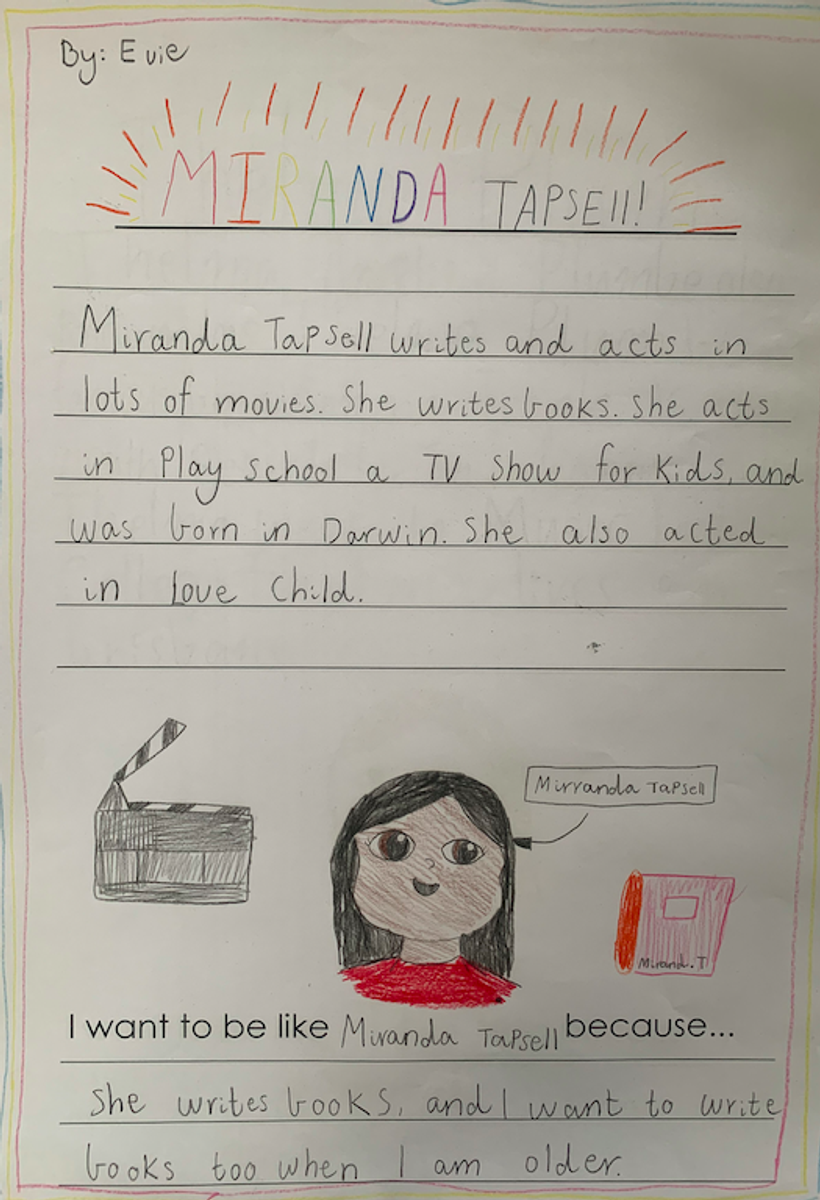 By: Evie
MIRANDA TAPSEll!
Miranda Tapsell writes and acts in
lots of movies. She writes books. She acts
in Play school a TV Show for Kids, and
was born in Darwin. She also acted
in Love Child.
Mirranda Tapsell
Mirand.T
I want to be like Miranda Tapsell because...
She writes books, and I want to write
books too when I am older.